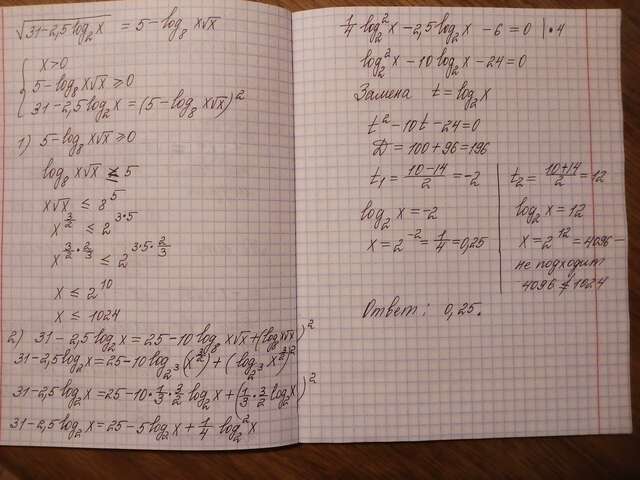 √(31-2,5log₂x) = 5-log₈ x√x
{ x>0
5-log₈ x√x ≥0
31-2,5log₂x=(5-log₈ x√x)²
1) 5-log₈ x√x ≥0
log₈ x√x ≤ 5
x√x ≤ 8⁵
x^(3/2) ≤ 2^(3·5)
x^(3/2·2/3) ≤ 2^(3·5·2/3)
x ≤ 2¹⁰
x ≤ 1024
2) 31-2,5log₂x=25-10log₈ x√x+(log₈ x√x)²
31-2,5log₂x=25-10log_(2³)(x^(3/2))+(log_(2³) x^(3/2))²
31-2,5log₂x=25-10·1/3·3/2 log₂x+(1/3·3/2 log₂x)²
31-2,5log₂x=25-5log₂x+1/4 log₂²x
1/4 log₂²x-2,5log₂x-6=0 |·4
log₂²x-10log₂x-24=0
Замена t=log₂x
t²-10t-24=0
D=100+96=196
t₁=(10-14)/2=-2
log₂x=-2
x=2⁻²=1/4=0,25
t₂=(10+14)/2=12
log₂x=12
x=2¹²=4096-
не подходит
4096≰1024
Ответ: 0,25.